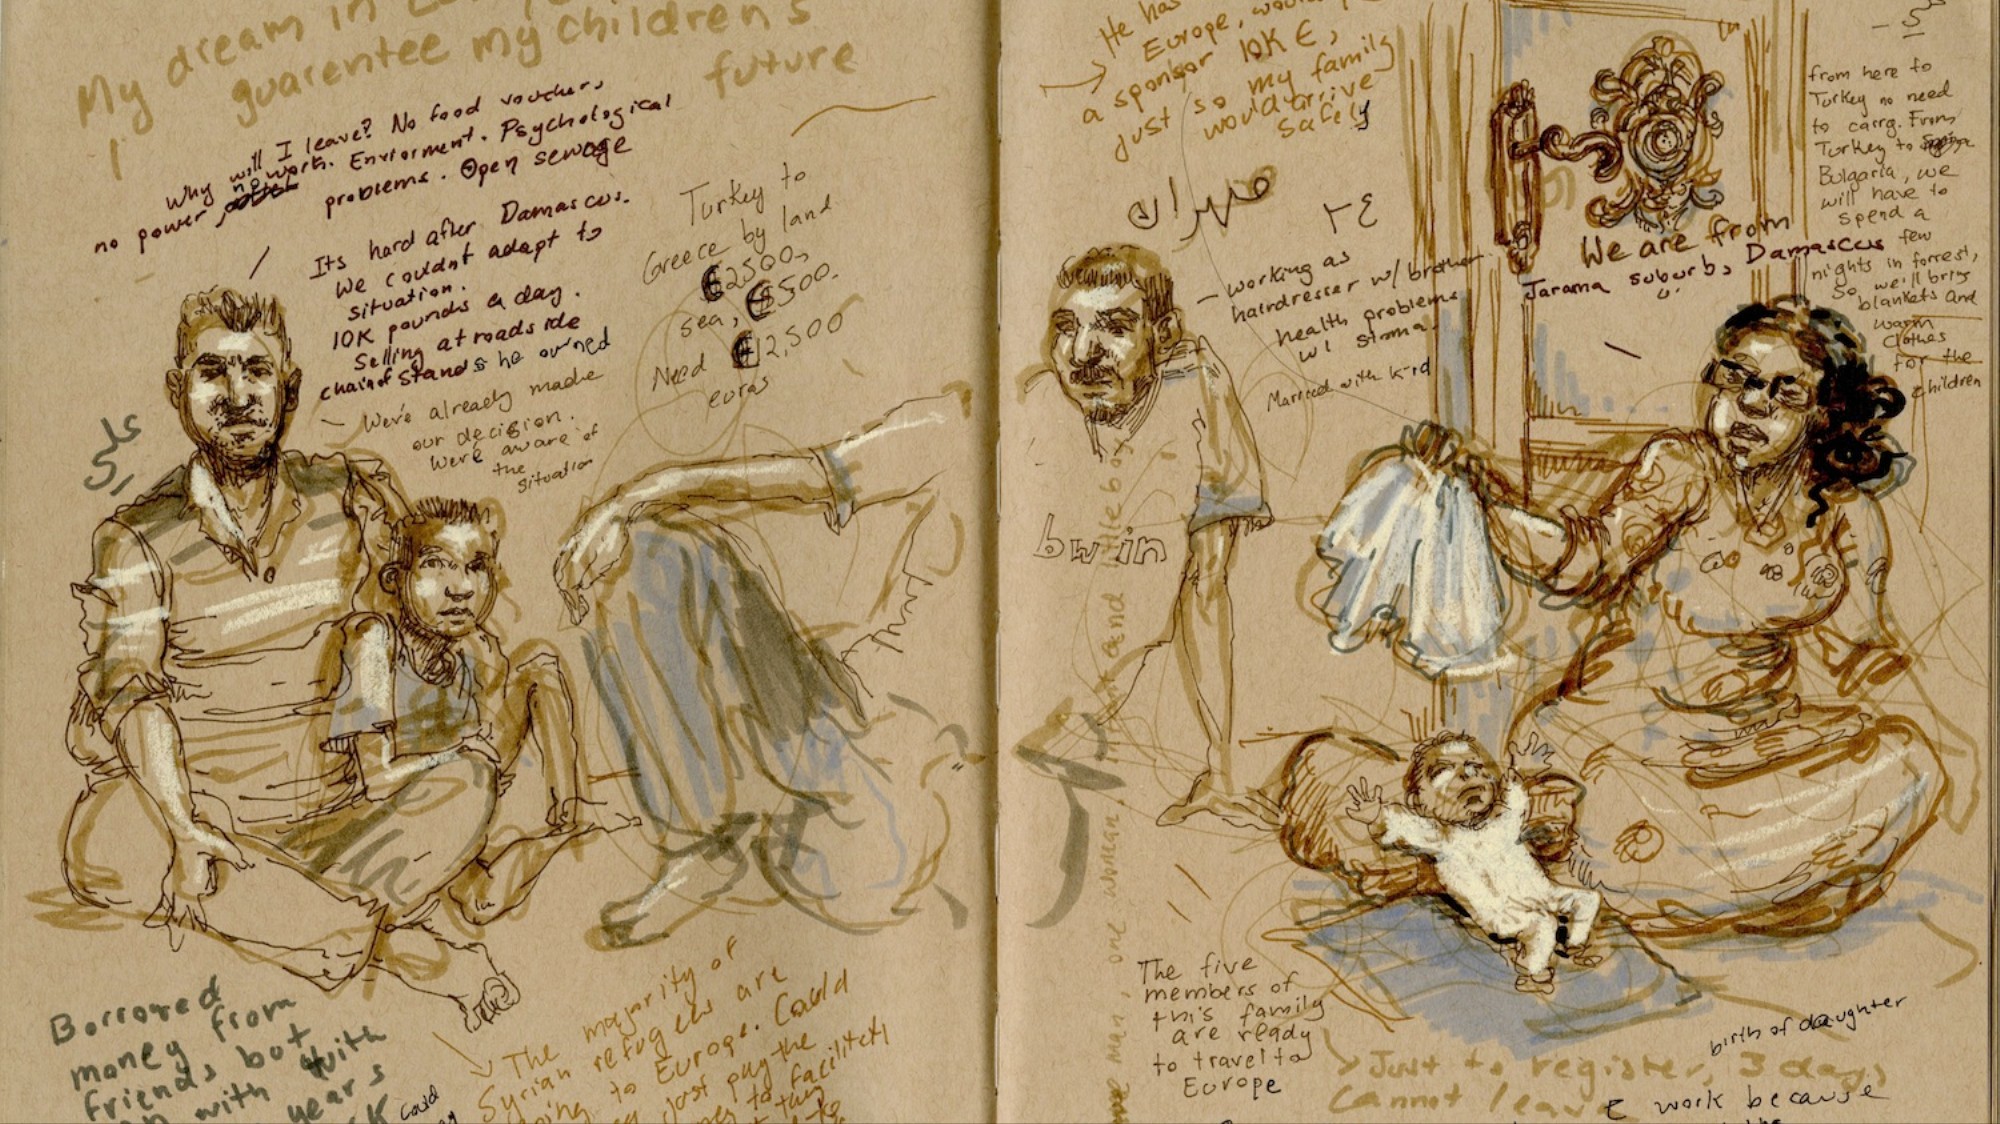 My dream in
guarentee my children's
future
Why will I leave? No food vouchers,
no power, no work. Enviorment. Psychological
problems. Open sewage
Its hard after Damascus.
We couldnt adapt to
situation.
10K pounds a day.
Selling at roadside
chain of stands he owned
- We've already made
our decision.
We're aware of
the
situation
Turkey to
Greece by land
€2500,
sea, €500.
Need €12,500
euros
Borrowed
money from
friends but
with
with
years
could
The majority of
Syrian refugees are
going to Europe. Could
just pay the
to facilitate
He has
Europe, would
a sponsor 10K €,
just so my family
would arrive
safely
مهران
٢٤
- working as
hairdresser w/ brother
health problems
w/ stoma.
Married with kid
bw in
and little boy
one woman.
man,
The five
members of
this family
are ready
to travel to
Europe
We are from
Jarama suburbs, Damascus
from here to
Turkey no need
to carry. From
Turkey to
Bulgaria, we
will have to
spend a
few
nights in forrest,
so we'll bring
blankets and
warm
clothes
for the
children
birth of daughter
Just to register, 3 days,
Cannot leave
work because